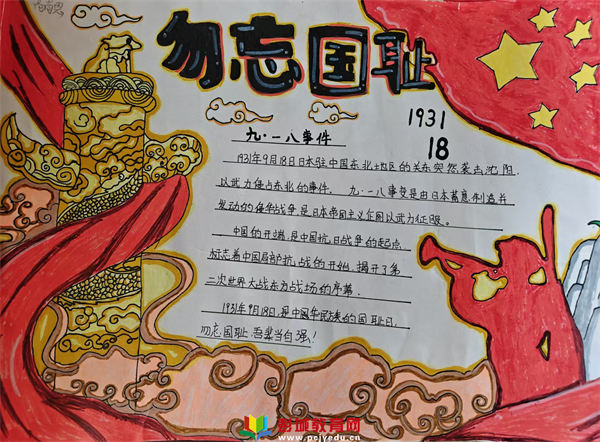 勿忘国耻
1931
18
九·一八事件
1931年9月18日日本驻中国东北地区的关东突然袭击沈阳
以武力侵占东北的事件. 九·一八事变是由日本蓄意制造并
发动的侵华战争是日本帝国主义企图以武力征服.
中国的开端,是中国抗日战争的起点
标志着中国局部抗战的开始,揭开了第
二次世界大战东方战场的序幕.
1931年9月18日,是中国华民族的国耻日.
勿忘国耻,吾辈当自强!
www.pcjyedu.cn